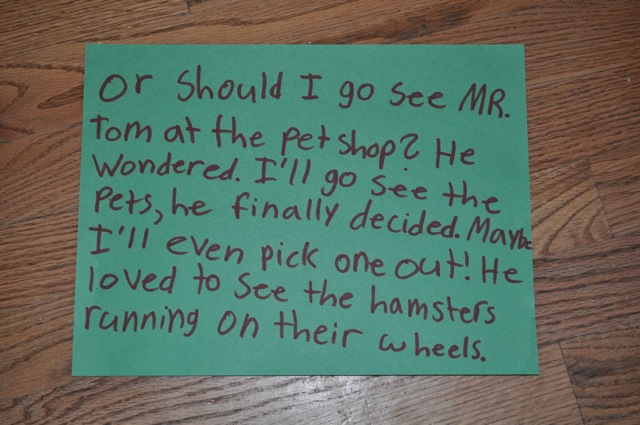 Or Should I go see MR.
Tom at the pet shop? He
Wondered. I'll go see the
Pets, he finally decided. Maybe
I'll even pick one out! He
loved to see the hamsters
running on their wheels.